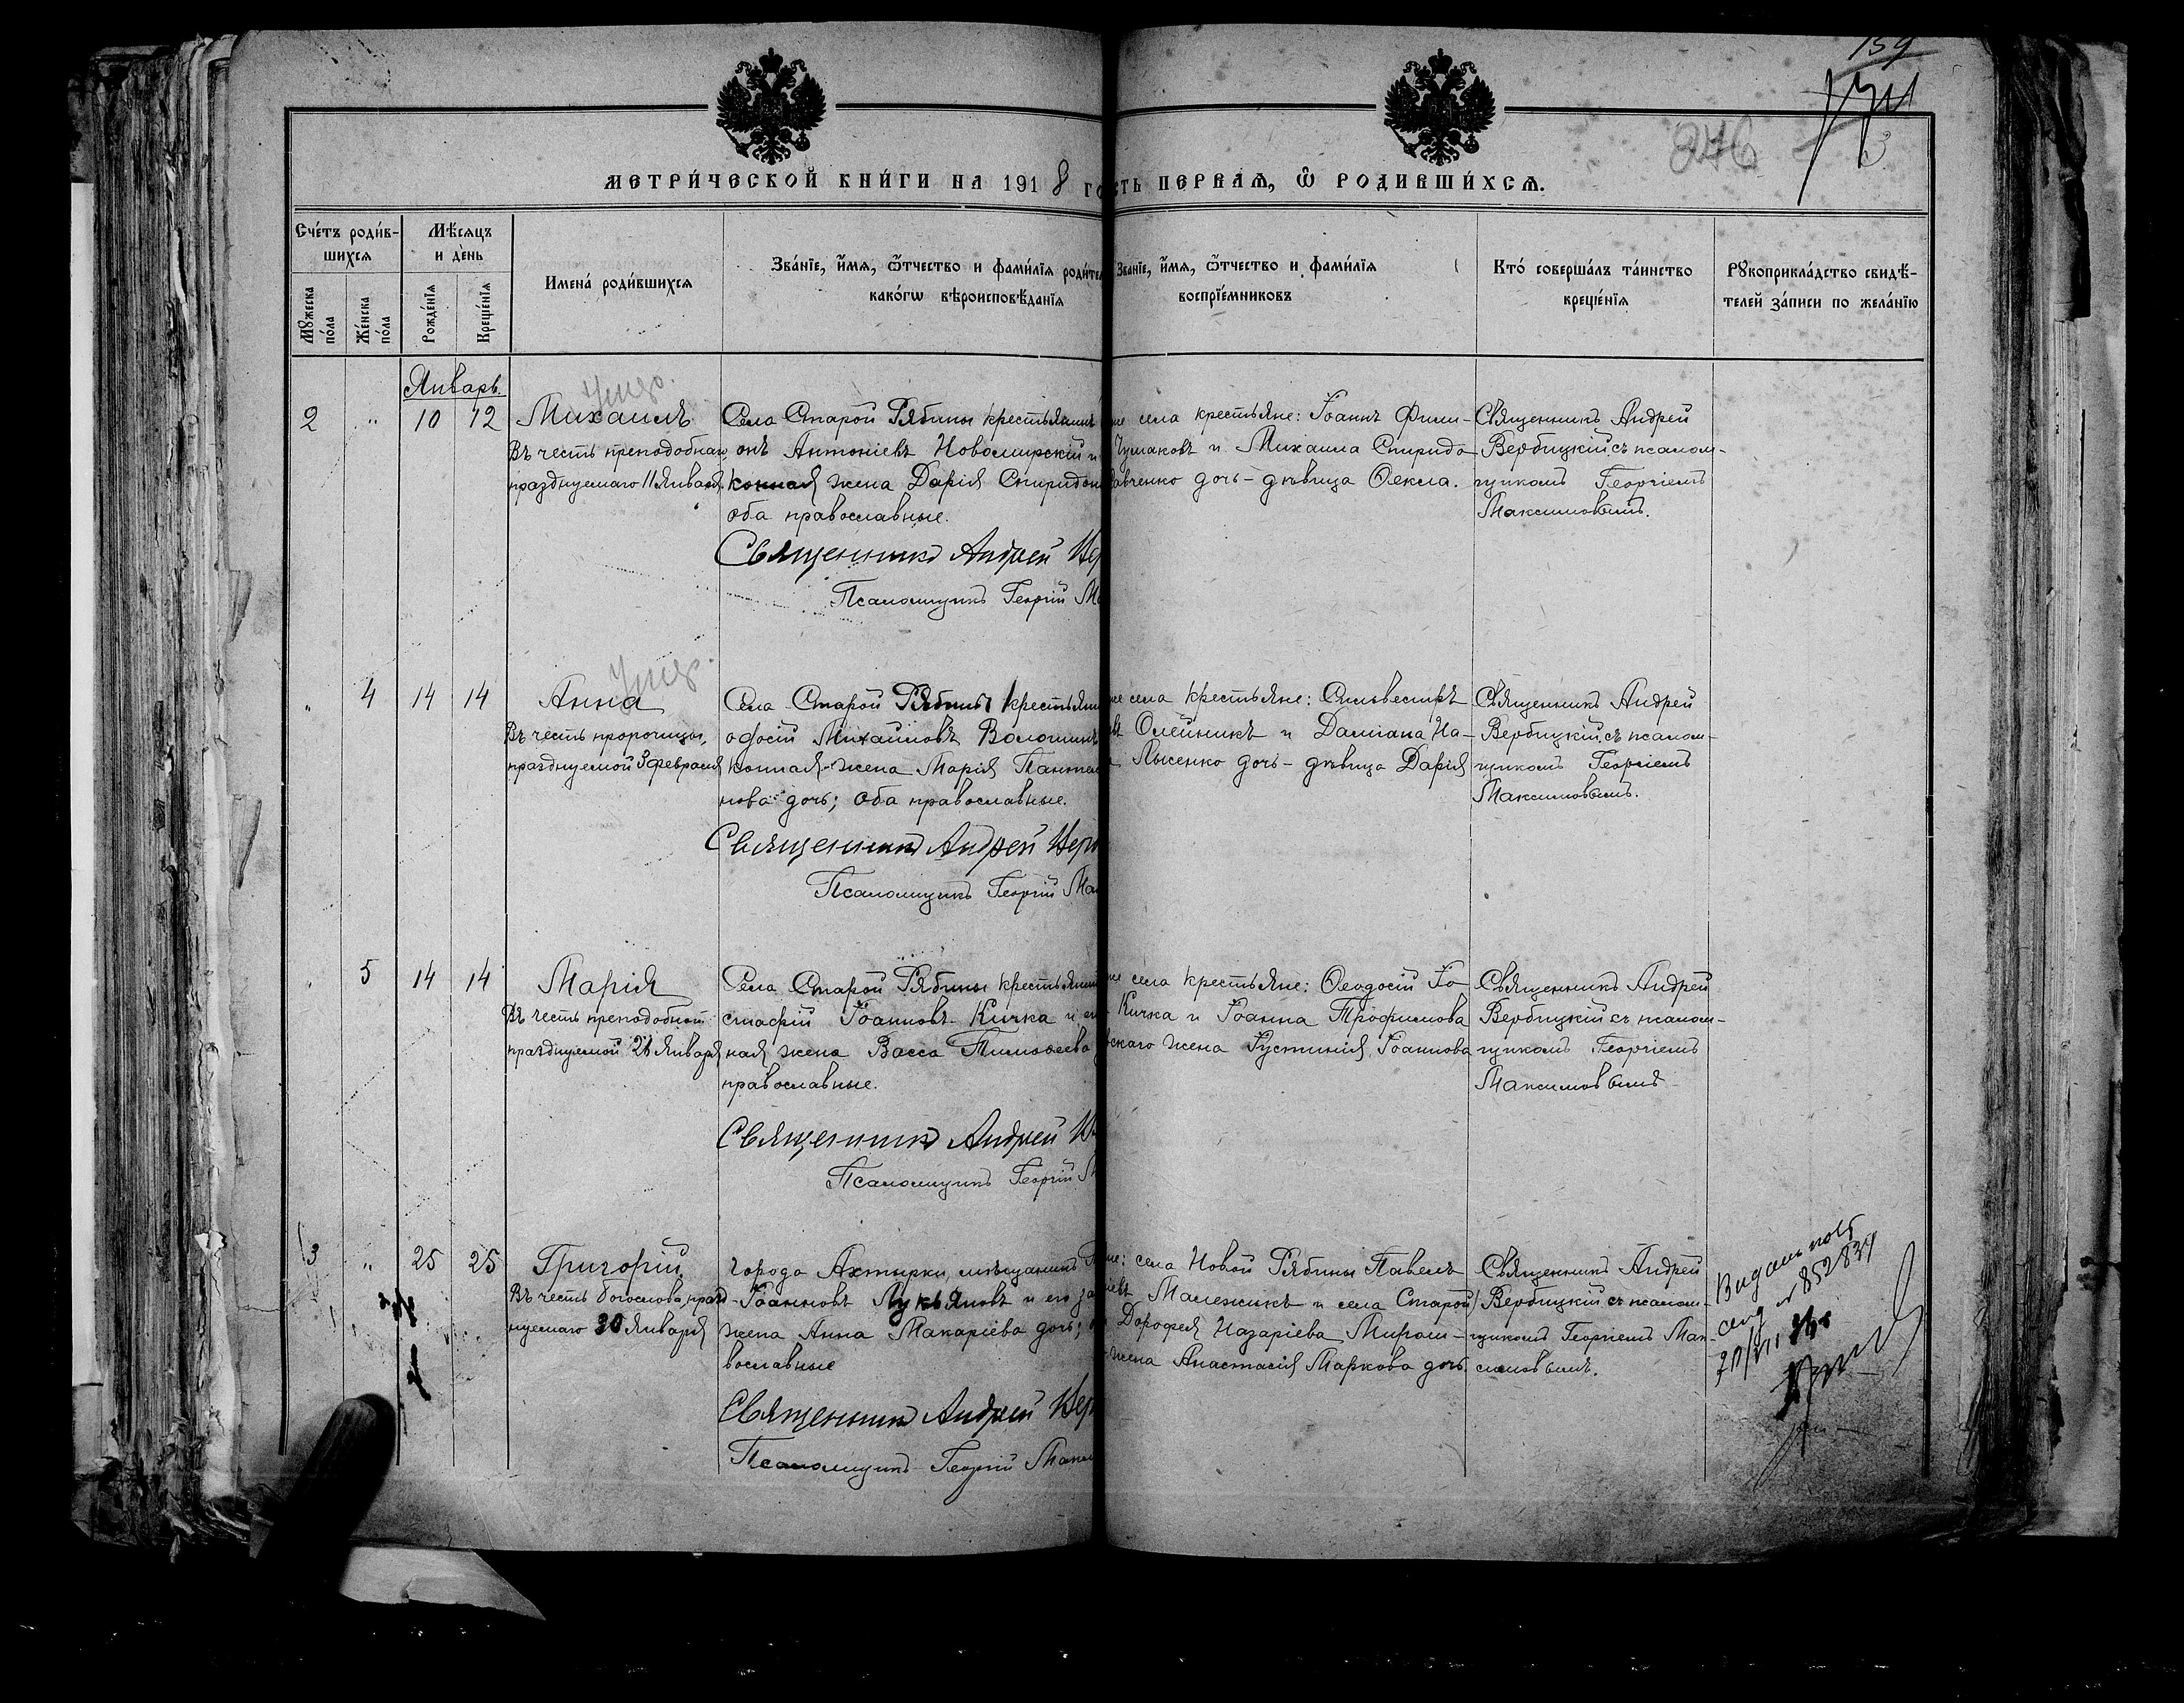 159
246
МЕТРИ́ЧЕСКОЙ КНИ́ГИ НА 1918 ГО
СТЬ ПЕРВАѦ, Ѽ РОДИВШИ́ХСѦ.
Сче́тъ роди́в-
шихсѧ
Мꙋ́жеска по́ла
Же́нска по́ла
Мѣ́сѧцъ
и де́нь
Рожде́нїѧ
Креще́нїѧ
Имена̀ роди́вшихсѧ
Зва́нїе, и́мѧ, ѻ́тчество и фами́лїѧ роди́тел
како́гѡ вѣроисповѣ́данїѧ
Зва́нїе, и́мѧ, ѻ́тчество и фами́лїѧ
воспрїе́мниковъ
Кто̀ соверша́лъ та́инство
креще́нїѧ
Рꙋкоприкла́дство свидѣ́-
телей за́писи по жела́нїю
Январь.
2 " 10 12
Михаилъ
Въ честь преподобнаго,
празднуемаго 11 Января.
Села Старой Рябины крестьянинъ
онъ Антоніевъ Новомирскій и
конная жена Дарія Спиридон
оба православные.
Священникъ Андрей Вер
Псаломщикъ Георгій Ма
же села крестьяне: Іоаннъ Фили-
Чумаковъ и Михаила Спиридо
авченко дочь - дѣвица Ѳекла.
Священникъ Андрей
Вербицкій съ псалом-
щикомъ Георгіемъ
Максимовымъ.
" 4 14 14
Анна
Въ честь пророчицы,
празднуемой 3 февраля
Села Старой Рябины крестьянин
офостій Михаиловъ Волошинъ
конная жена Марія Пантел
нова дочь; оба православные.
Священникъ Андрей Верб
Псаломщикъ Георгій Мак
же села крестьяне: Сильвестръ
Олейникъ и Даміана На-
Лысенко дочь - дѣвица Дарія
Священникъ Андрей
Вербицкій съ псалом-
щикомъ Георгіемъ
Максимовымъ.
" 5 14 14
Марія
Въ честь преподобной
празднуемой 26 Января
Села Старой Рябины крестьянин
стафій Іоанновъ Кичка и ег
ная жена Васса Тимоѳеева
православные.
Священникъ Андрей В
Псаломщикъ Георгій М
же села крестьяне: Ѳеодосій Іо
Кичка и Іоанна Трофимова
вскаго жена Іустинія Іоаннова
Священникъ Андрей
Вербицкій съ псалом-
щикомъ Георгіемъ
Максимовымъ
3 " 25 25
Григорій
Въ честь богослова, празд-
нуемаго 30 Января
города Ахтырки, мѣщанинъ
Іоанновъ Лукьяновъ и его за
жена Анна Макаріева дочь; о
вославные
Священникъ Андрей Верб
Псаломщикъ Георгій Макси
не: села Новой Рябины Павелъ
Малежикъ и села Старой
Дорофея Назаріева Мирош-
жена Анастасія Маркова дочь.
Священникъ Андрей
Вербицкій съ псалом-
щикомъ Георгіемъ Мак-
симовымъ.
№ 852834